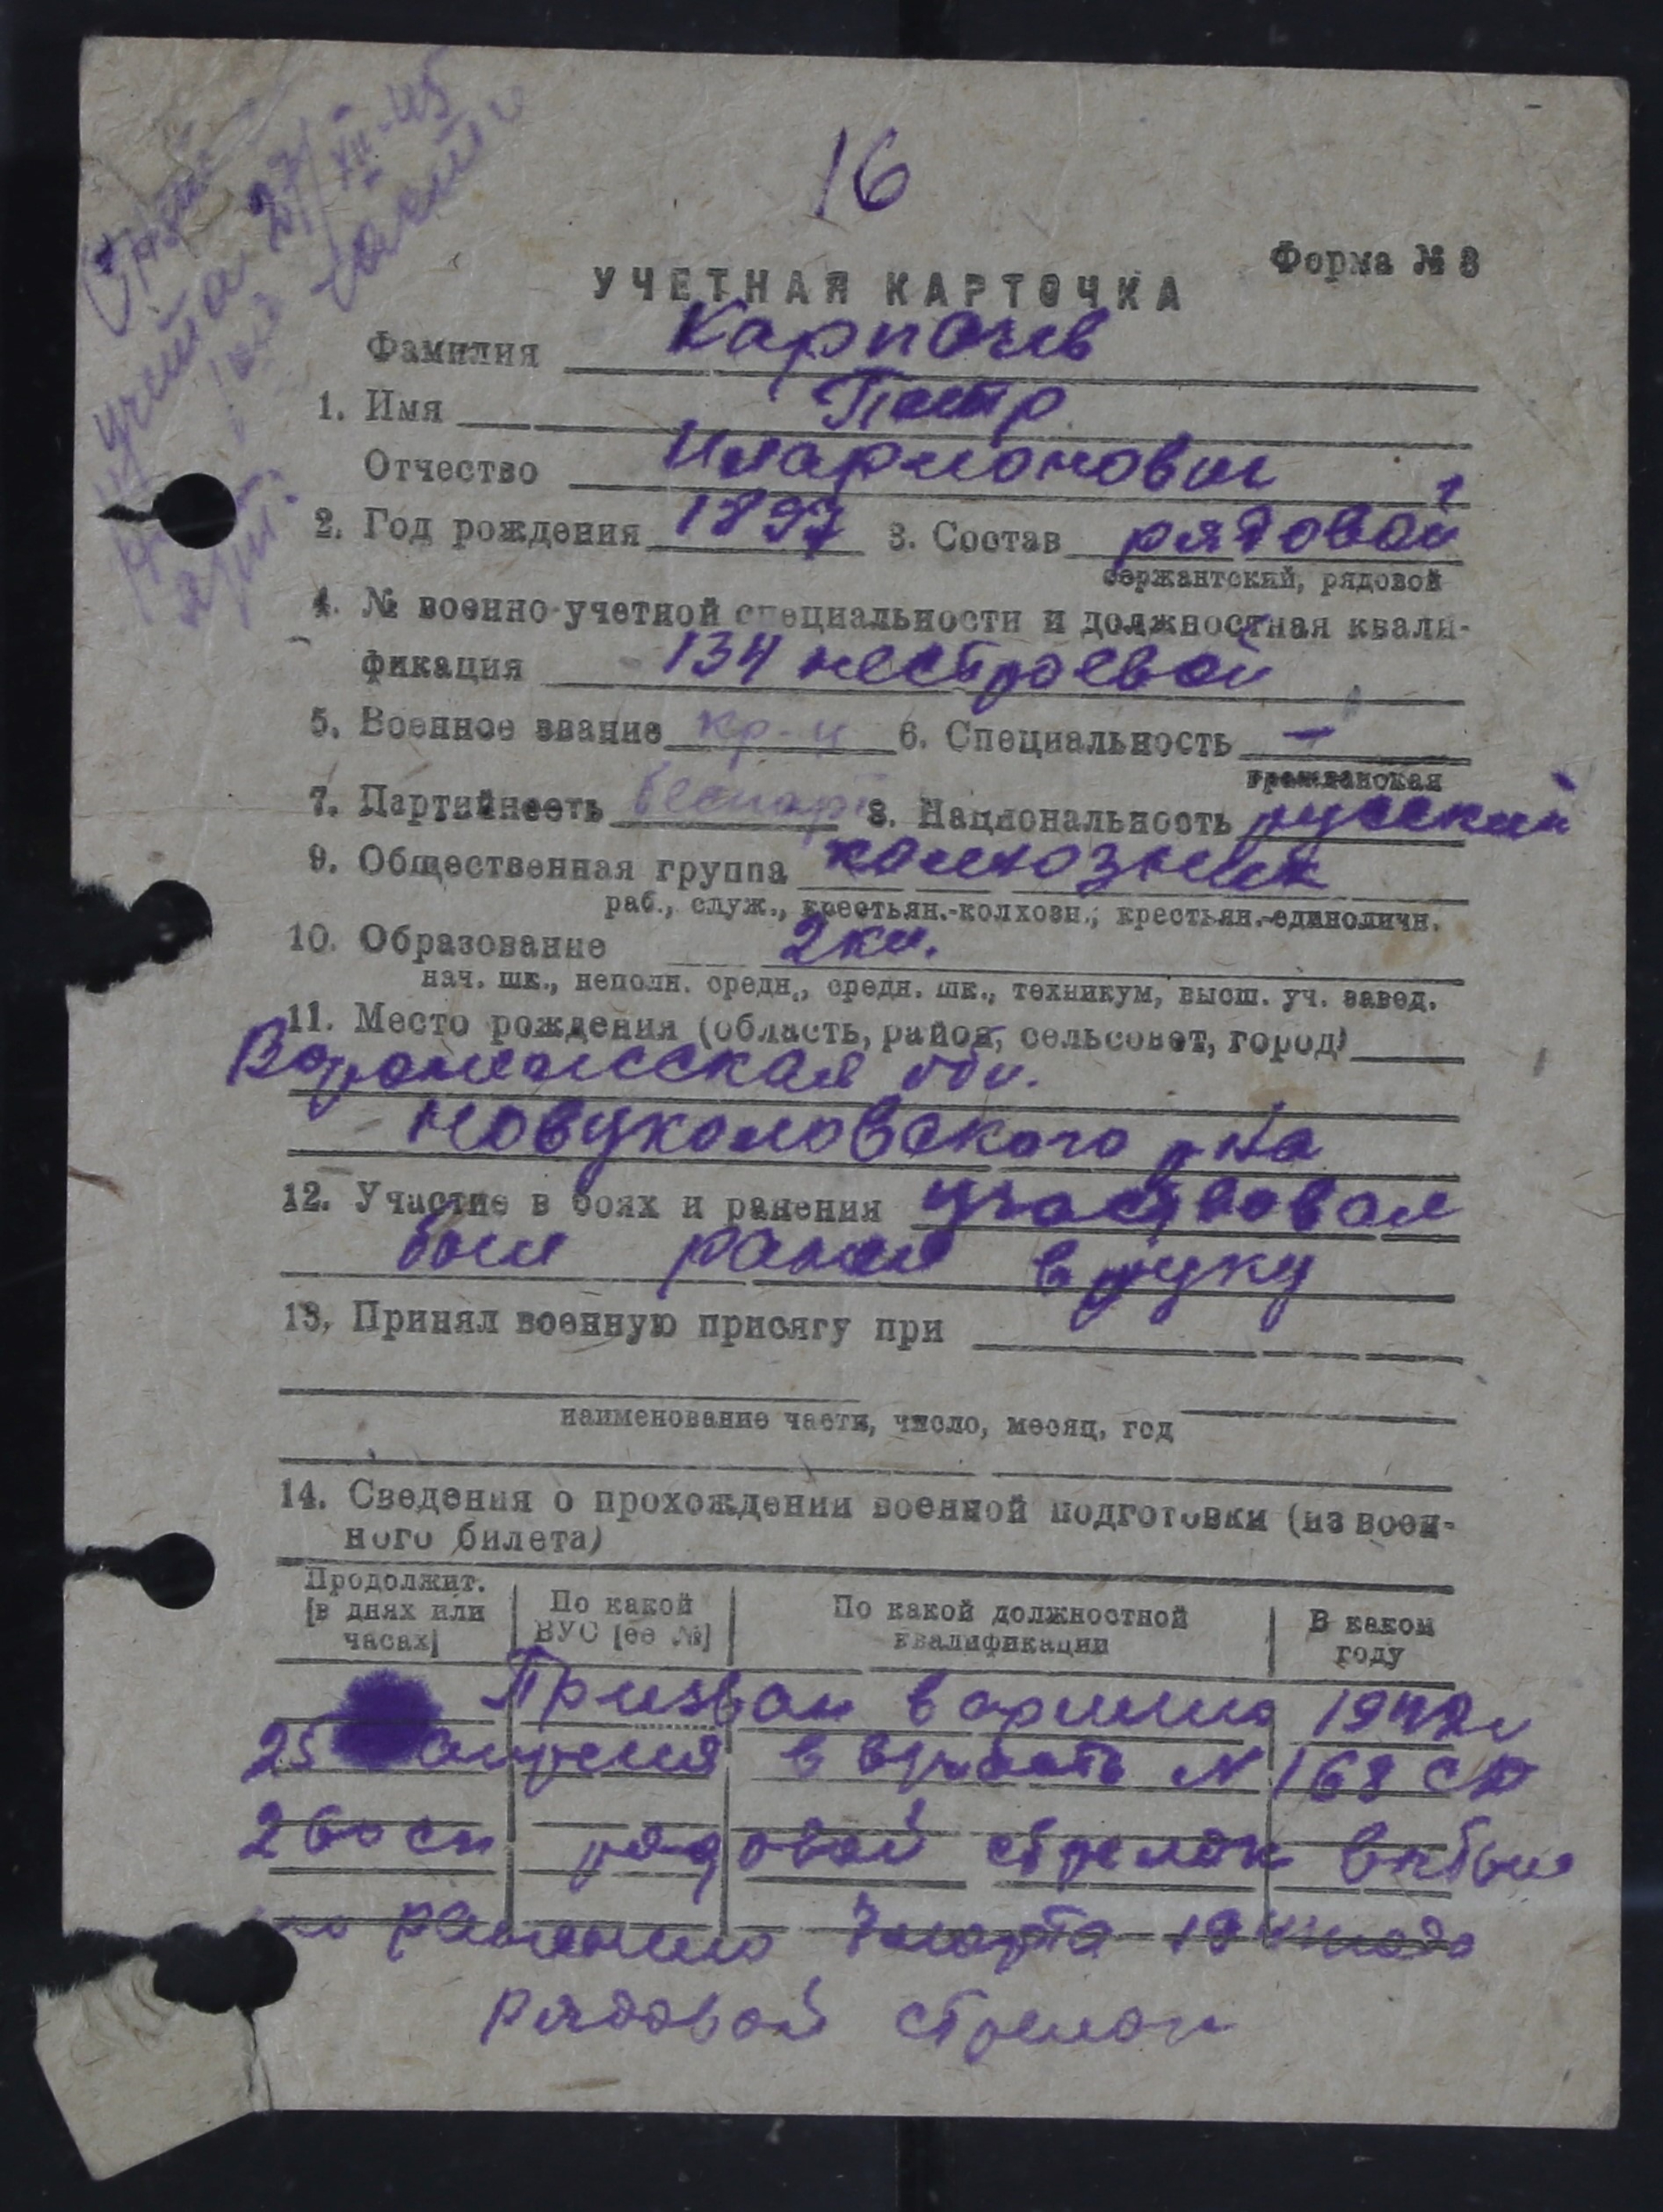 16
Форма № 8
УЧЕТНАЯ КАРТОЧКА
учета 27/XII-45
Фамилия Карпачев
1. Имя Петр
Отчество Иларионович
2. Год рождения 1897 3. Состав рядовой
сержантский, рядовой
4. № военно-учетной специальности и должностная квали-
фикация 134 нестроевой
5. Военное звание кр-ц 6. Специальность —
гражданская
7. Партийность беспарт 8. Национальность русский
9. Общественная группа колхозник
раб., служ., крестьян.-колхозн., крестьян.-единоличн.
10. Образование 2 кл.
нач. шк., неполн. средн., средн. шк., техникум, высш. уч. завед.
11. Место рождения (область, район, сельсовет, город)
Воронежская обл.
Новукаловского р-на
12. Участие в боях и ранения участвовал
был ранен в руку
13. Принял военную присягу при
наименование части, число, месяц, год
14. Сведения о прохождении военной подготовки (из воен-
ного билета)
Продолжит. [в днях или часах] По какой ВУС [ее №] По какой должностной квалификации В каком году
Призван в армию 1942 г
25 апреля в в/часть № 168 СД
260 сп рядовой стрелок выбыл
по ранению 7 марта 1944 года
Рядовой стрелок